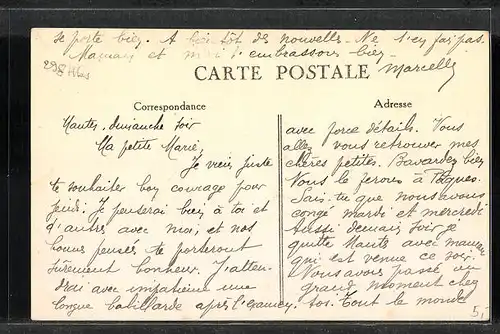 se porte bien. A bientôt des nouvelles. Ne t'en fais pas.
Maman et moi t'embrassons bien
Marcelle
CARTE POSTALE
Correspondance
Adresse
Nantes, dimanche soir
Ma petite Marie,
Je viens juste
te souhaiter bon courage pour
jeudi. Je penserai bien à toi et
d'autres avec moi, et nos
bonnes pensées te porteront
sûrement bonheur. J'atten-
drai avec impatience une
longue babillarde après l'examen,
avec force détails. Vous
allez vous retrouver mes
chères petites. Bavardez bien
Nous le ferons à Pâques.
Sais-tu que nous avons
congé mardi et mercredi
aussi demain soir je
quitte Nantes avec maman
qui est venue ce soir.
Nous avons passé un
grand moment chez
toi. Tout le monde